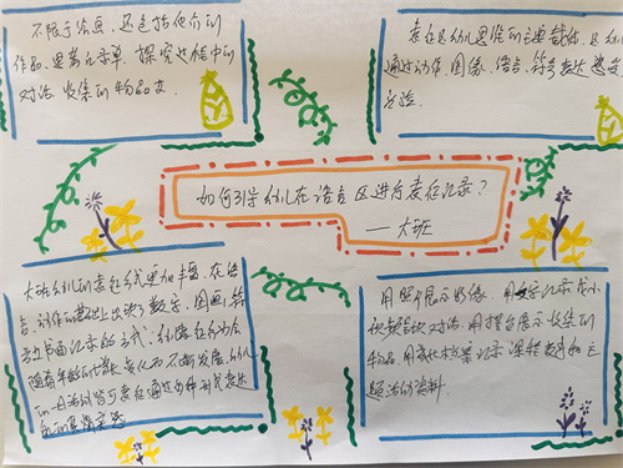 不限于绘画,还包括他们的
作品、思考记录单、探究过程中的
对话、收集的物品等.
表征是幼儿思维的主要载体,是幼儿
通过动作、图像、语言、符号表达
经验.
如何引导幼儿在语言区进行表征记录?
——大班
大班幼儿的表征方式更加丰富,在语
言、动作的基础上出现了数字、图画、符
号、书面记录的方式,幼儿表征行为会
随着年龄的增长变化而不断发展,幼儿
在一日活动皆可表征通过多种形式表达
自己的真情实感
用照片展示影像,用文字记录或小
视频留下对话,用择台展示收集的
物品,用
题活动资料.